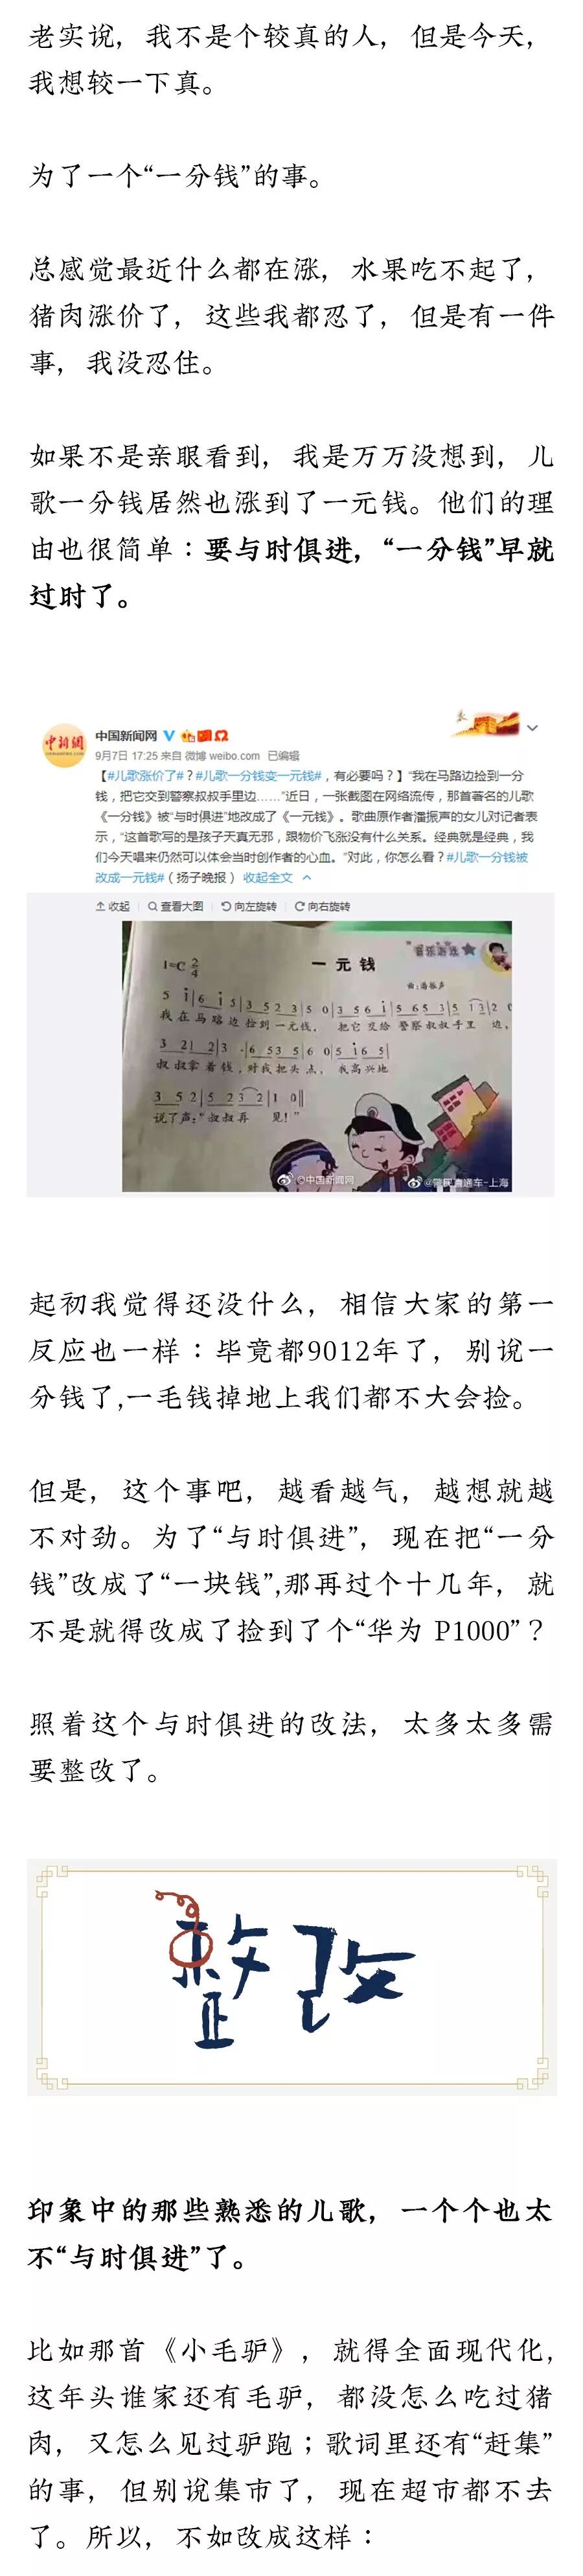 老实说，我不是个较真的人，但是今天，
我想较一下真。
为了一个“一分钱”的事。
总感觉最近什么都在涨，水果吃不起了，
猪肉涨价了，这些我都忍了，但是有一件
事，我没忍住。
如果不是亲眼看到，我是万万没想到，儿
歌一分钱居然也涨到了一元钱。他们的理
由也很简单：要与时俱进，“一分钱”早就
过时了。
中新网
中国新闻网
9月7日 17:25 来自 微博 weibo.com 已编辑
【#儿歌涨价了#？#儿歌一分钱变一元钱#，有必要吗？】“我在马路边捡到一分
钱，把它交到警察叔叔手里边……”近日，一张截图在网络流传，那首著名的儿歌
《一分钱》被“与时俱进”地改成了《一元钱》。歌曲原作者潘振声的女儿对记者表
示，“这首歌写的是孩子天真无邪，跟物价飞涨没有什么关系。经典就是经典，我
们今天唱来仍然可以体会当时创作者的心血。”对此，你怎么看？#儿歌一分钱被
改成一元钱#（扬子晚报） 收起全文
收起 查看大图 向左旋转 向右旋转
音乐游戏
1=C 2/4
一元钱
曲:潘振声
5 i|6 i 5|3 5 2 3|5 0|3 5 6 i|5 6 5 3|5 1 3|2 0
我在马路边捡到一元钱， 把它交给警察叔叔手里 边，
3 2 1 2|3 ·|6 5 3 5|6 0|5 i 6 5|
叔叔拿着钱，对我把头点， 我高兴地
3 5 2|5 2 3 2|1 0‖
说了声：“叔叔再 见！”
@中国新闻网
@警民直通车-上海
起初我觉得还没什么，相信大家的第一
反应也一样：毕竟都9012年了，别说一
分钱了,一毛钱掉地上我们都不大会捡。
但是，这个事吧，越看越气，越想就越
不对劲。为了“与时俱进”，现在把“一分
钱”改成了“一块钱”,那再过个十几年，就
不是就得改成了捡到了个“华为 P1000”？
照着这个与时俱进的改法，太多太多需
要整改了。
整改
印象中的那些熟悉的儿歌，一个个也太
不“与时俱进”了。
比如那首《小毛驴》，就得全面现代化，
这年头谁家还有毛驴，都没怎么吃过猪
肉，又怎么见过驴跑；歌词里还有“赶集”
的事，但别说集市了，现在超市都不去
了。所以，不如改成这样：